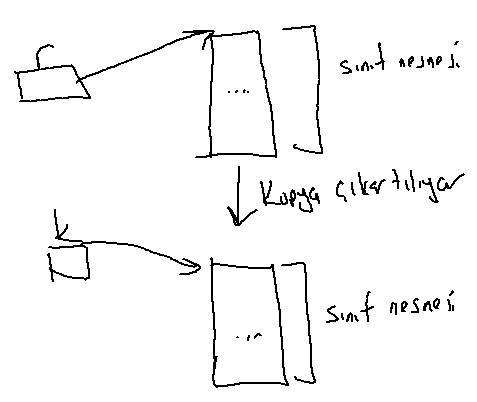 r
...
sınıf nesnesi
Kopya çıkartılıyor
k
...
sınıf nesnesi